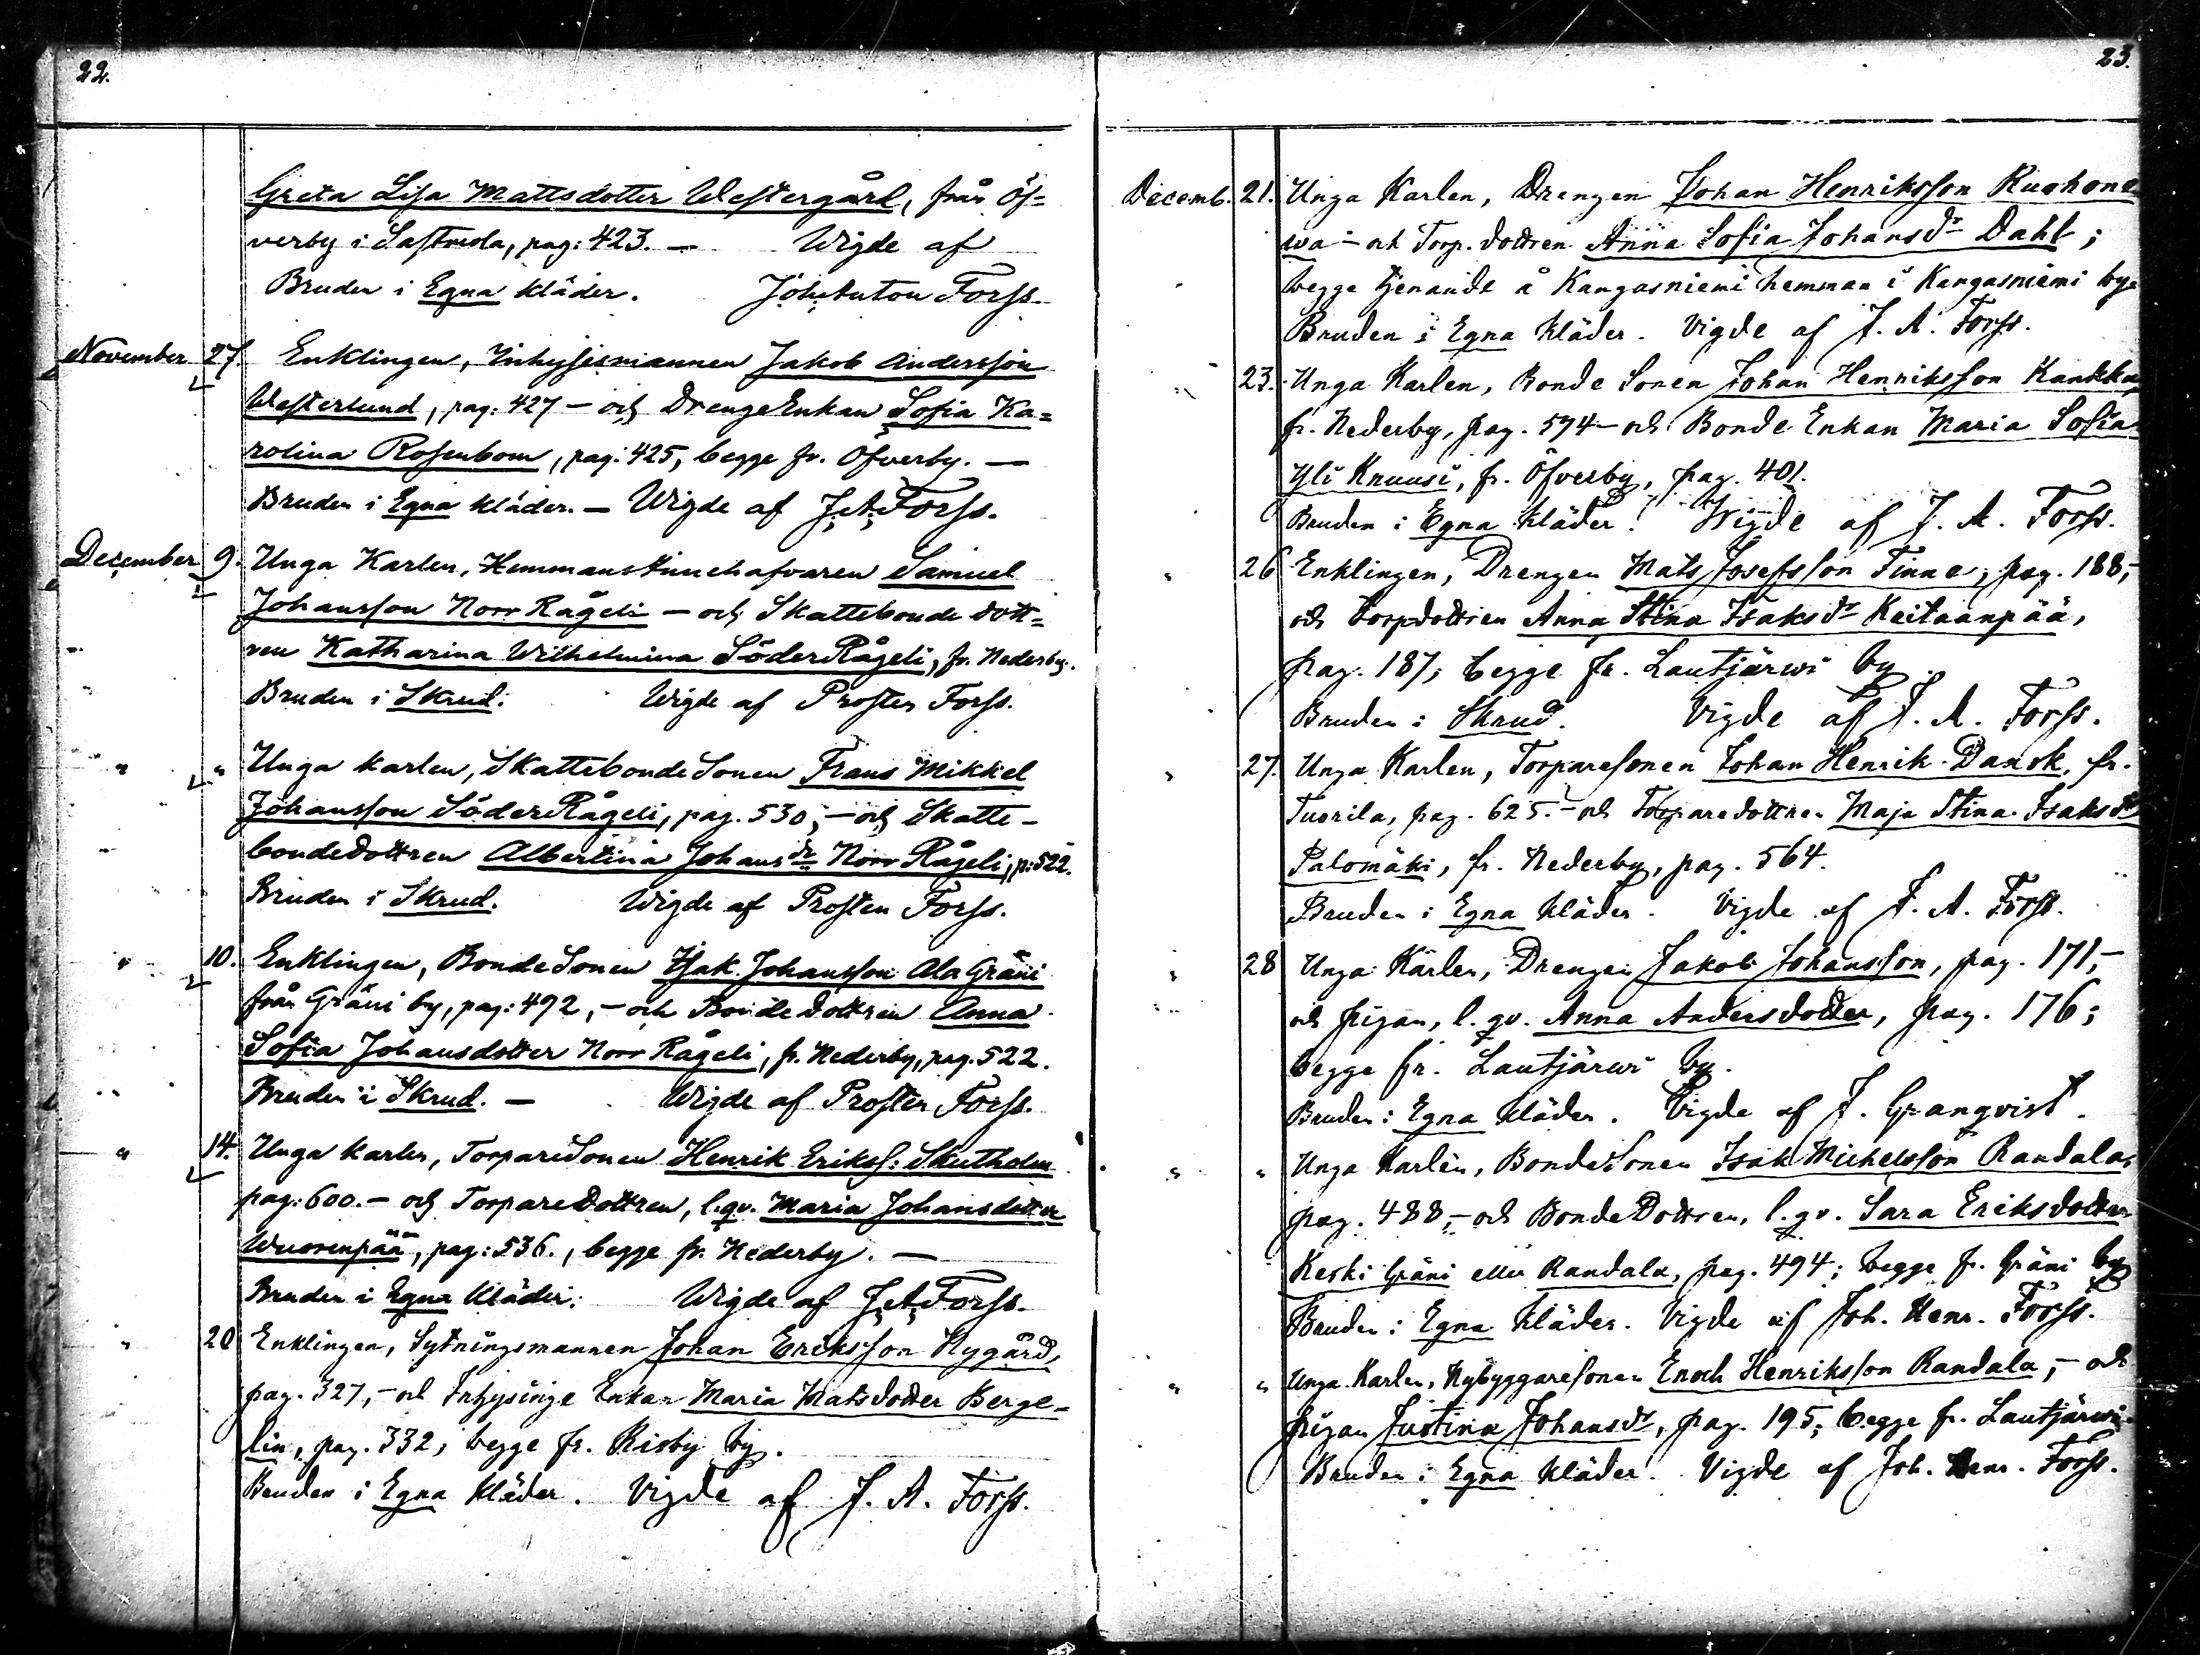 22.
Greta Lisa Mattsdotter Westergård, från Öf-
verby i Sastmola, pag: 423. — Wigde af
Bruden i Egna kläder. Joh. Anton Forss.
November 27. Enklingen, Inhysesmannen Jakob Andersson
Westerlund, pag. 427 — och DrengeEnkan Sofia Ka=
rolina Rosenbom, pag: 425, begge fr. Öfverby. —
Bruden i Egna kläder. — Wigde af J. A. Forss.
December 9. Unga Karlen, Hemmansinnehafvaren Samuel
Johansson Norr Rågeli — och Skattebonde dott=
ren Katharina Wilhelmina SöderRågeli, fr. Nederby.
Bruden i Skrud. Wigde af Prosten Forss.
" " Unga karlen, SkattebondeSonen Frans Mikkel
Johansson SöderRågeli, pag. 530, — och Skatte-
bondedottren Albertina Johansdr Norr Rågeli, p: 522.
Bruden i Skrud. Wigde af Prosten Forss.
" 10. Enklingen, BondeSonen Isak Johansson AlaGräni
från Gräni by, pag: 492, — och Bondedottren Anna
Sofia Johansdotter Norr Rågeli, fr. Nederby, pag. 522.
Bruden i Skrud. — Wigde af Prosten Forss.
" 14. Unga karlen, TorpareSonen Henrik Erikss: Skutholm
pag: 600. — och TorpareDottren, l. qv. Maria Johansdotter
Wuorenpää, pag: 536., begge fr. Nederby. —
Bruden i Egna kläder. Wigde af J. A. Forss.
" 20 Enklingen, Sytningsmannen Johan Eriksson Nygård,
pag. 327, — och Inhysinge Enkan Maria Matsdotter Berge-
lin, pag. 332, begge fr. Risby by.
Bruden i Egna kläder. Vigde af J. A. Forss.
23.
Decemb. 21. Unga Karlen, Drengen Johan Henriksson Ruohone
wa — och Torp. dottren Anna Sofia Johansdr Dahl;
begge tjenande å Kangasniemi hemman i Kangasniemi by.
Bruden i Egna kläder. Vigde af J. A. Forss.
" 23. Unga Karlen, Bonde Sonen Johan Henriksson Kankku
fr. Nederby, pag. 594 — och Bonde Enkan Maria Sofia
Yli Knuusi, fr. Öfverby, pag. 401.
Bruden i Egna kläder. Wigde af J. A. Forss.
" 26 Enklingen, Drengen Mats Josefsson Finne, pag. 188, —
och Torpdottren Anna Stina Isaksdr Keitaanpää,
pag. 187; begge fr. Lautjärwi by.
Bruden i Skrud. Vigde af J. A. Forss.
" 27. Unga Karlen, Torparesonen Johan Henrik Dansk, fr.
Tuorila, pag. 625. — och Torparedottren Maja Stina Isaksdr
Palomäki, fr. Nederby, pag. 564.
Bruden i Egna kläder. Vigde af J. A. Forss.
" 28 Unga Karlen, Drengen Jakob Johansson, pag. 171, —
och pigan, l. qv. Anna Andersdotter, pag. 176;
begge fr. Lautjärwi by.
Bruden i Egna kläder. Vigde af J. Granqvist.
" " Unga Karlen, BondeSonen Isak Michelsson Randala,
pag. 488, — och BondeDottren, l. qv. Sara Eriksdotter
Keski Gräni eller Randala, pag. 494; begge fr. Gräni by
Bruden i Egna kläder. Vigde af Joh. Henr. Forss.
" " Unga Karlen, Nybyggaresonen Enoch Henriksson Randala, — och
pigan Justina Johansdr, pag. 195; begge fr. Lautjärwi.
Bruden i Egna kläder. Vigde af Joh. Henr. Forss.